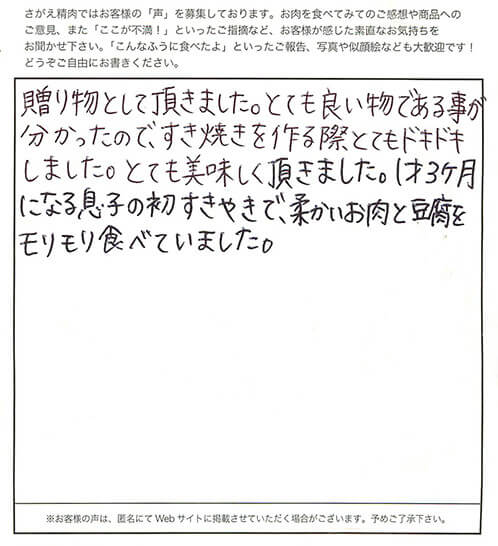 さがえ精肉ではお客様の「声」を募集しております。お肉を食べてみてのご感想や商品への
ご意見、また「ここが不満！」といったご指摘など、お客様が感じた素直なお気持ちを
お聞かせ下さい。「こんなふうに食べたよ」といったご報告、写真や似顔絵なども大歓迎です！
どうぞご自由にお書きください。
贈り物として頂きました。とても良い物である事が
分かったので、すき焼きを作る際とてもドキドキ
しました。とても美味しく頂きました。1才3ヶ月
になる息子の初すきやきで、柔かいお肉と豆腐を
モリモリ食べていました。
※お客様の声は、匿名にてWebサイトに掲載させていただく場合がございます。予めご了承下さい。